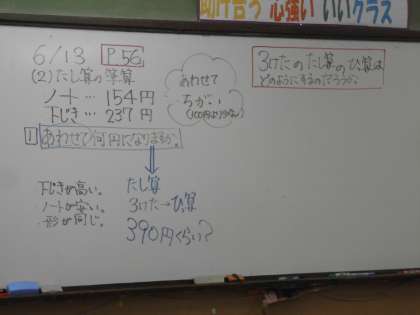 助け合う 心強い いいクラス
6/13 P.56
(2)たし算の筆算
ノート… 154円
下じき… 237円
あわせて
ちがい
(100円より少ない)
3けたのたし算のひっ算は
どのようにするのだろうか。
1 あわせて何円になりますか。
下じきが高い。
ノートが安い。
形が同じ。
たし算
3けた→ひっ算
390円くらい?